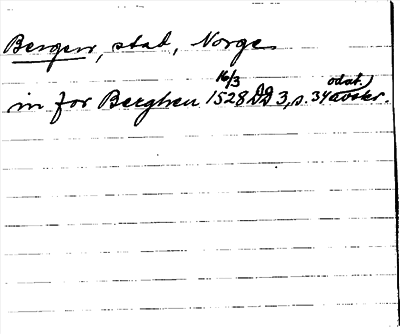 Bergen, stad, Norge
in for Berghen 16/3 1528 DG 3, s. 34 odat. avskr.